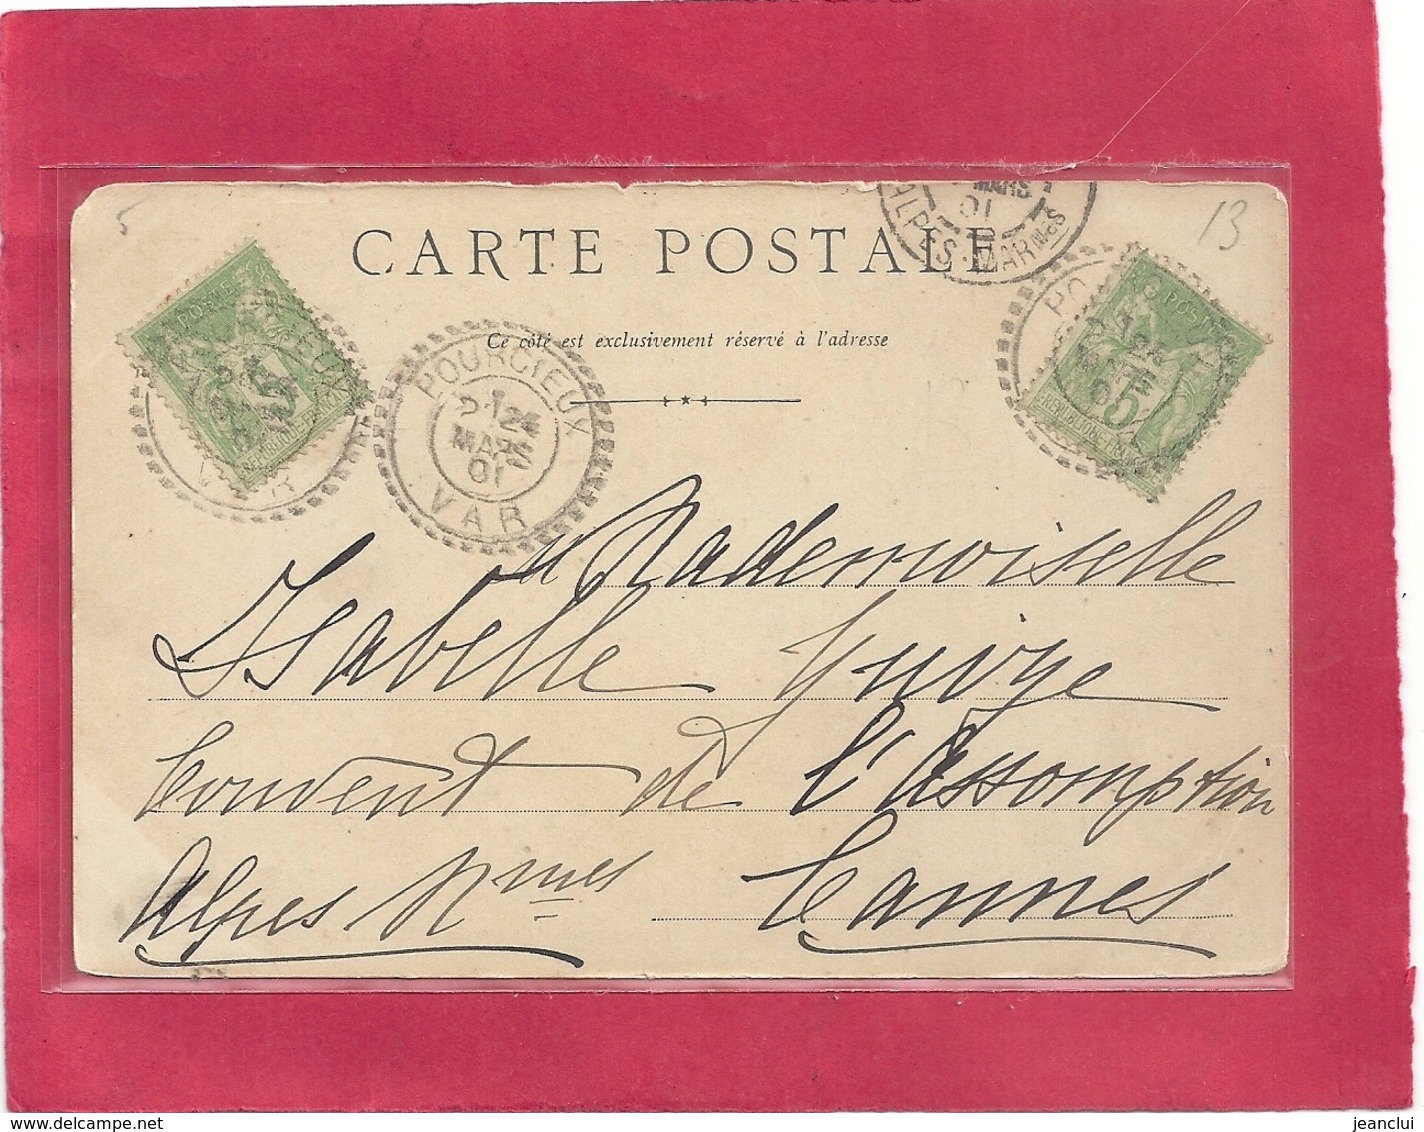 5
13
MARS
01
ALPES-MARmes
CARTE POSTALE
Ce côté est exclusivement réservé à l'adresse
POSTE
5
REPUBLIQUE
VAR
POURCIEUX
24
MARS
01
VAR
POSTE
5
REPUBLIQUE
à Mademoiselle
Isabelle
Couvent de l'Assomption
Cannes
Alpes Mmes
www.delcampe.net
jeanclui